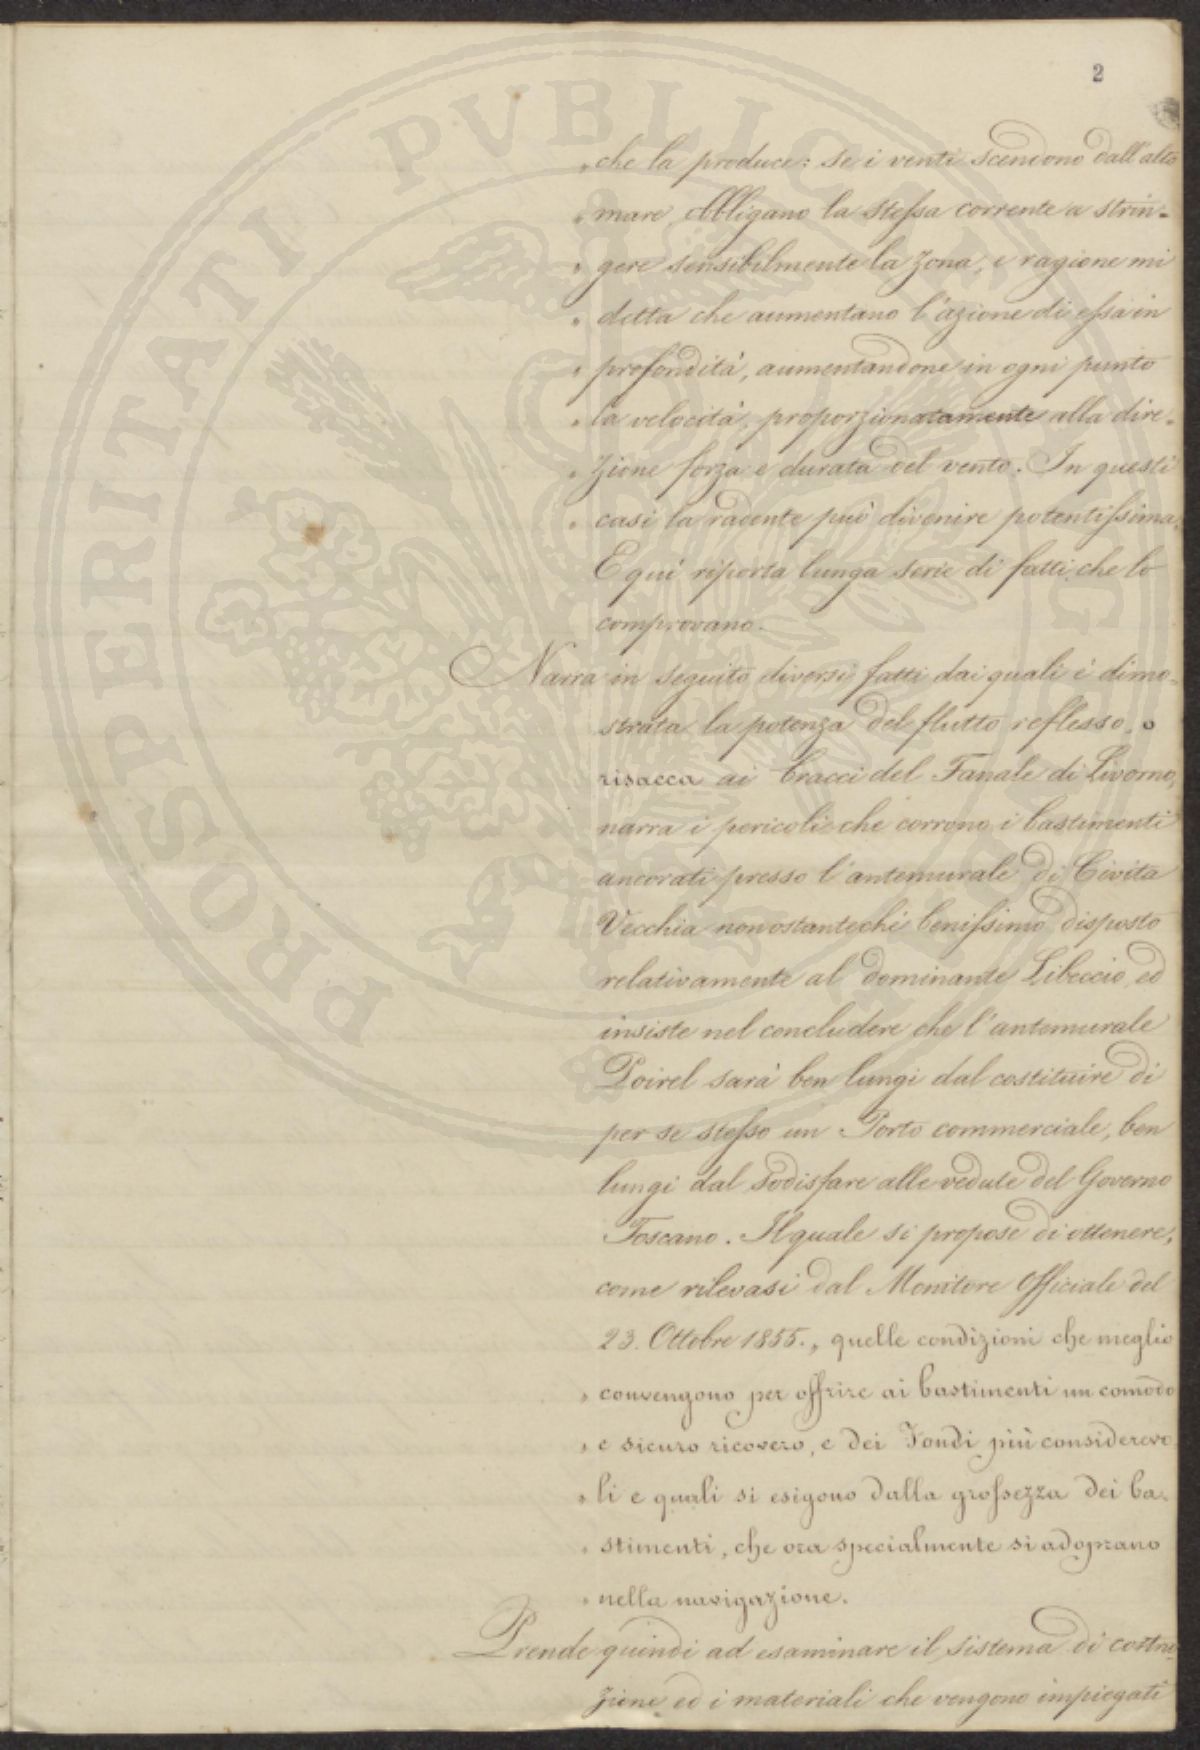 2
„ che la produce: se i venti scendono dall'alto
„ mare obbligano la stessa corrente a strin=
„ gere sensibilmente la zona, e ragione mi
„ detta che aumentano l'azione di essa in
„ profondità, aumentandone in ogni punto
„ la velocità, proporzionatamente alla dire=
„ zione forza e durata del vento. In questi
„ casi la radente può divenire potentissima.
E quì riporta lunga serie di fatti che lo
comprovano.
Narra in seguito diversi fatti dai quali è dimo=
strata la potenza del flutto reflesso, o
risacca ai bracci del Fanale di Livorno,
narra i pericoli che corrono i bastimenti
ancorati presso l'antemurale di Civita
Vecchia nonostantechè benissimo disposto
relativamente al dominante Libeccio, ed
insiste nel concludere che l'antemurale
Poirel sarà ben lungi dal costituire di
per se stesso un Porto commerciale, ben
lungi dal sodisfare alle vedute del Governo
Toscano. Il quale si propose di ottenere,
come rilevasi dal Monitore Officiale del
23. Ottobre 1855. „ quelle condizioni che meglio
„ convengono per offrire ai bastimenti un comodo
„ e sicuro ricovero, e dei Fondi più considerevo
„ li e quali si esigono dalla grossezza dei ba=
„ stimenti, che ora specialmente si adoprano
„ nella navigazione.
Prende quindi ad esaminare il sistema di costru=
zione ed i materiali che vengono impiegati
PROSPERITATI PVBLICAE